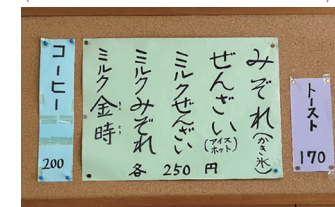 コーヒー
200
みぞれ(かき氷)
ぜんざい(アイス ホット)
ミルクぜんざい
ミルクみぞれ
ミルク金時
きん とき
各 250 円
トースト
170